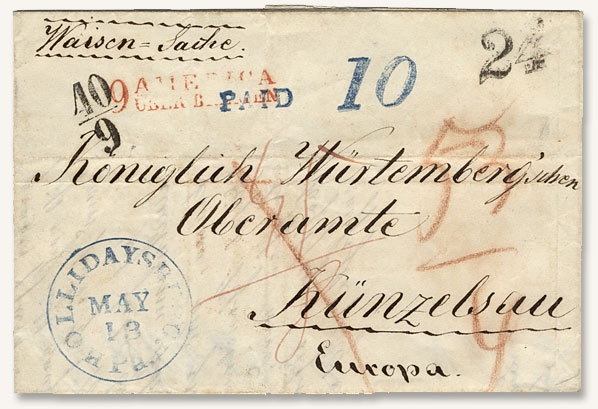 Waisen=Sache.
24
AMERICA
ÜBER BREMEN
PAID
10
40/9
9
Königlich Würtemberg'schen
Oberamte
Künzelsau
Europa.
HOLLIDAYSBURG
MAY
18
Pa.